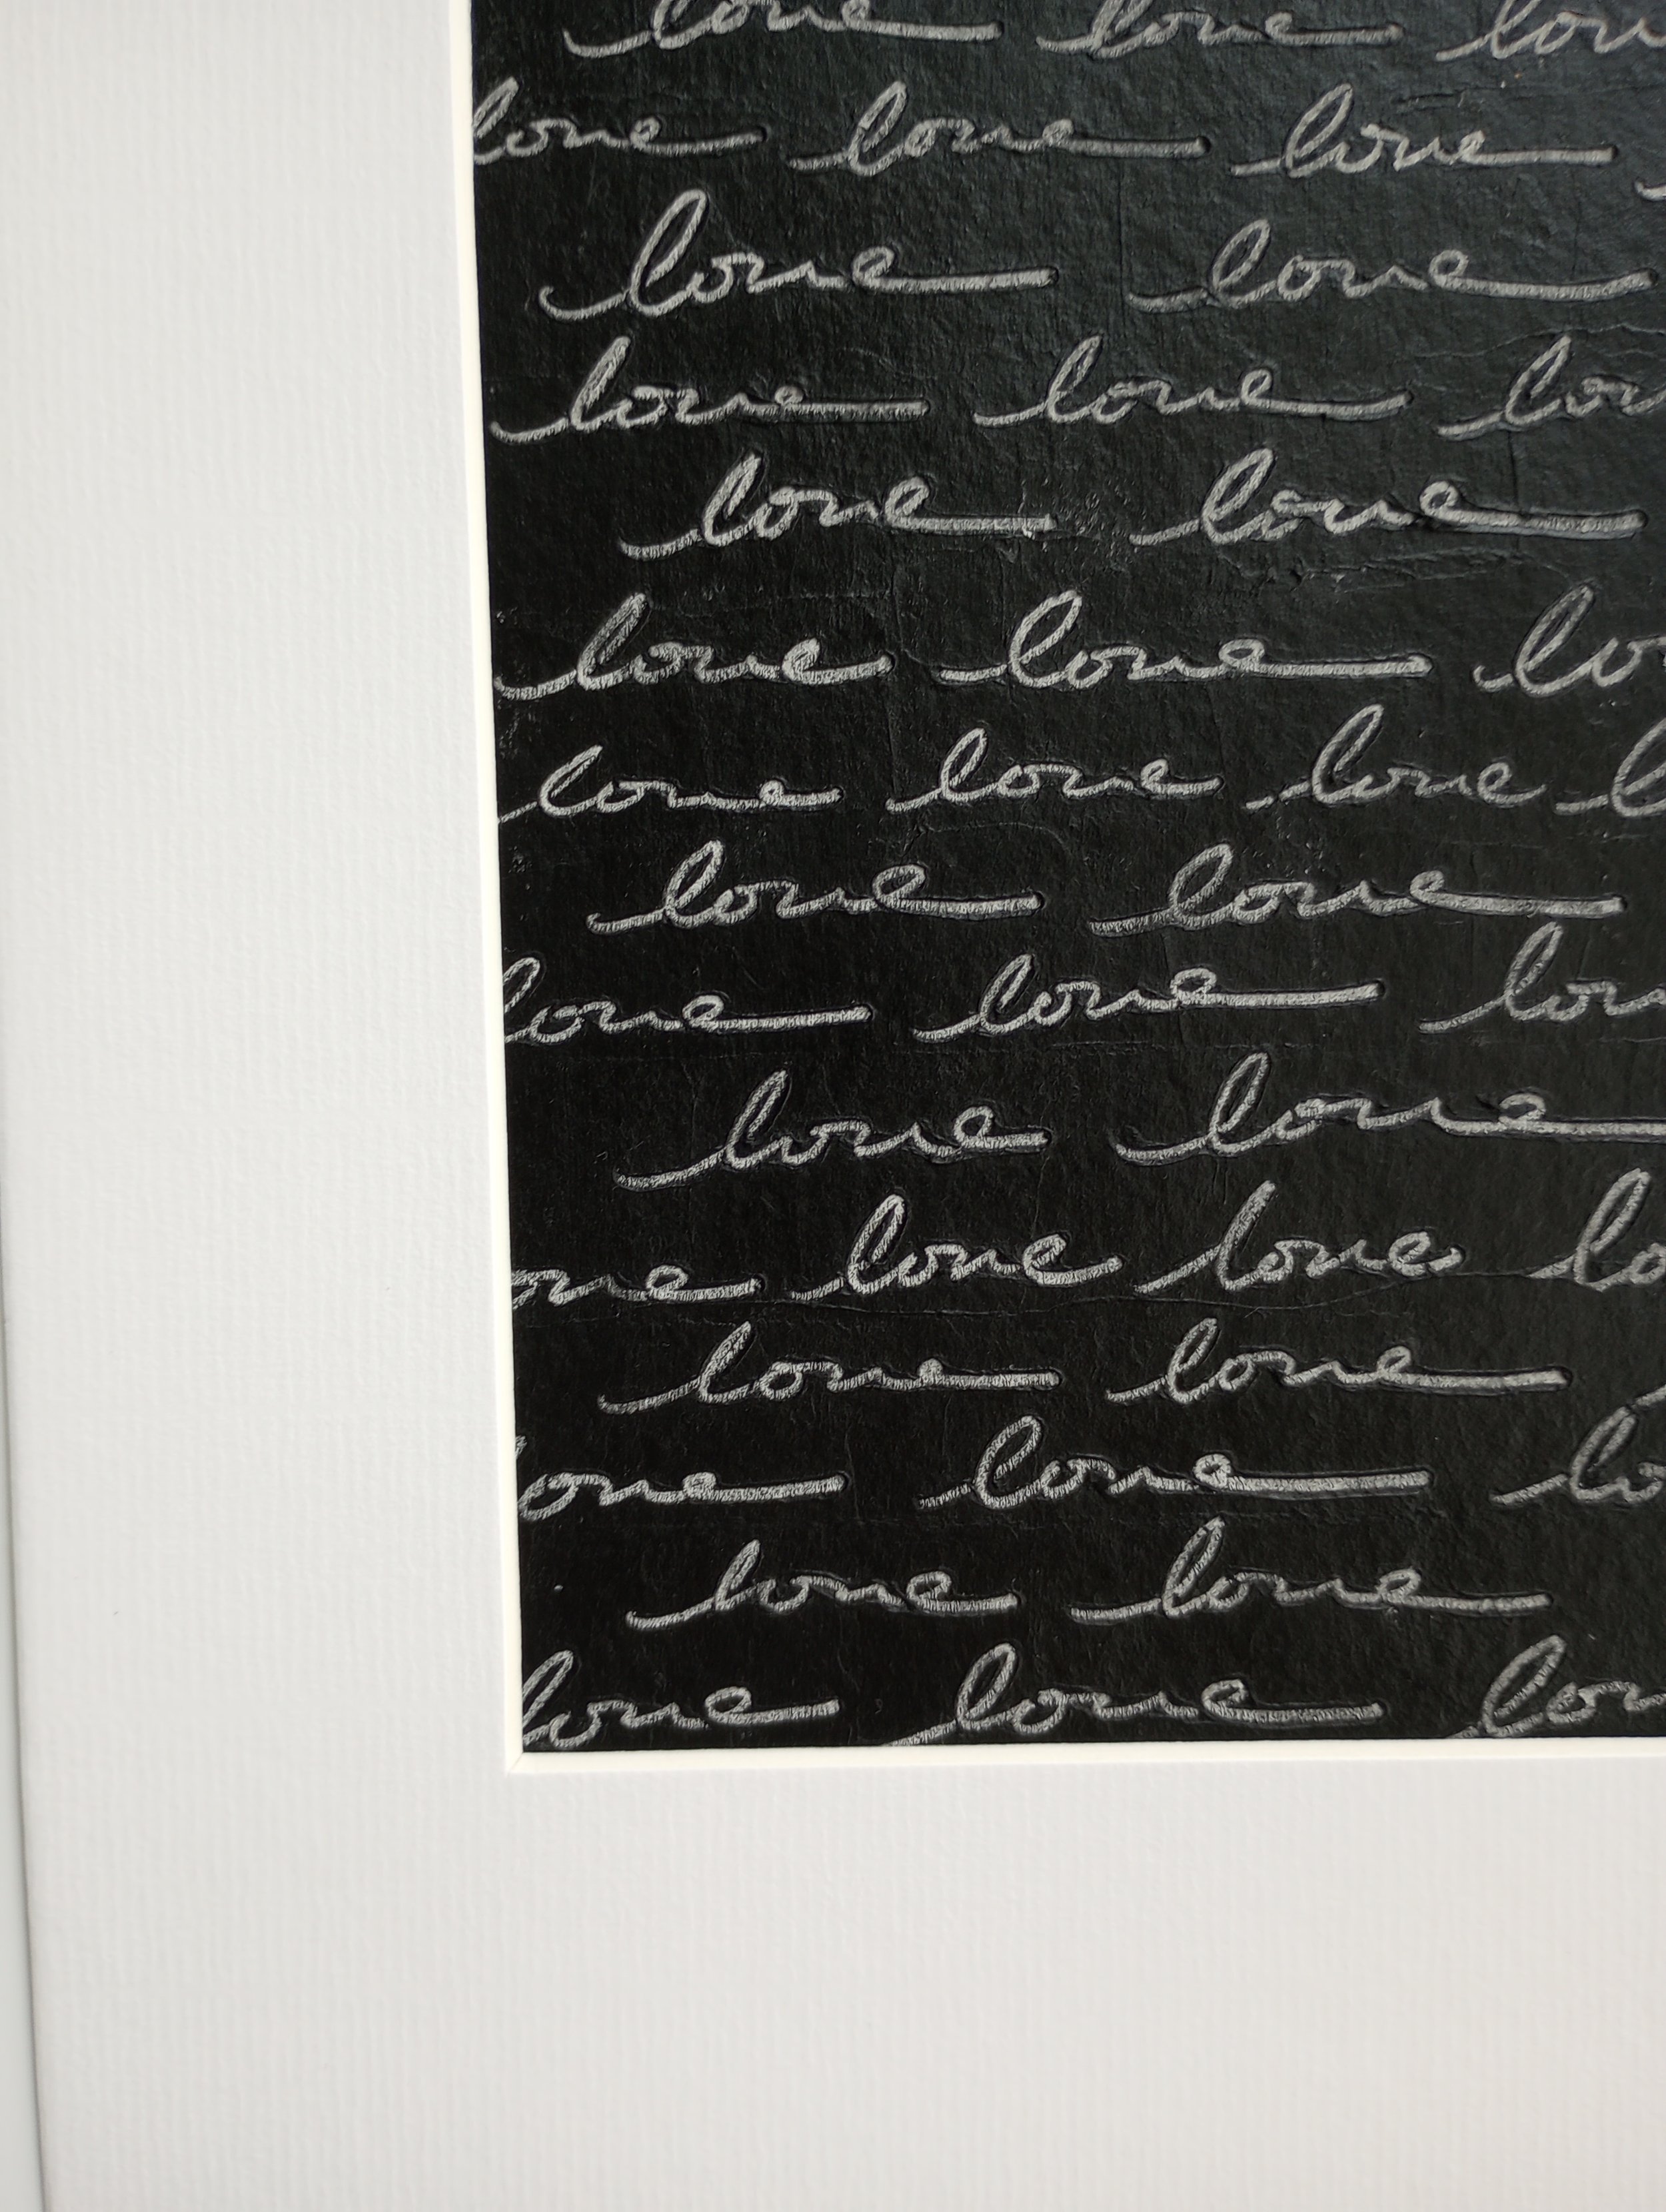 love love lov
love love love
love love
love love lov
love love
love love lo
love love love l
love love
love love lov
love love
ove love love lo
love love
love love lo
love love
love love lov